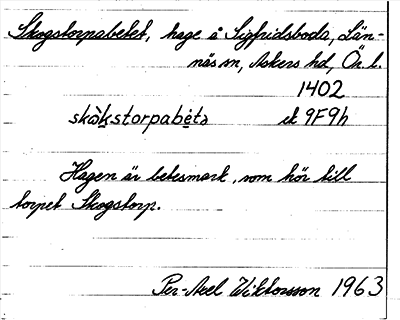 Skogstorpabetet, hage å Sigfridsboda, Län-
näs sn, Askers hd, Ör. l.
1402
skòkstorpabetə ek 9F9h
Hagen är betesmark, som hör till
torpet Skogstorp.
Per-Axel Wiktorsson 1963